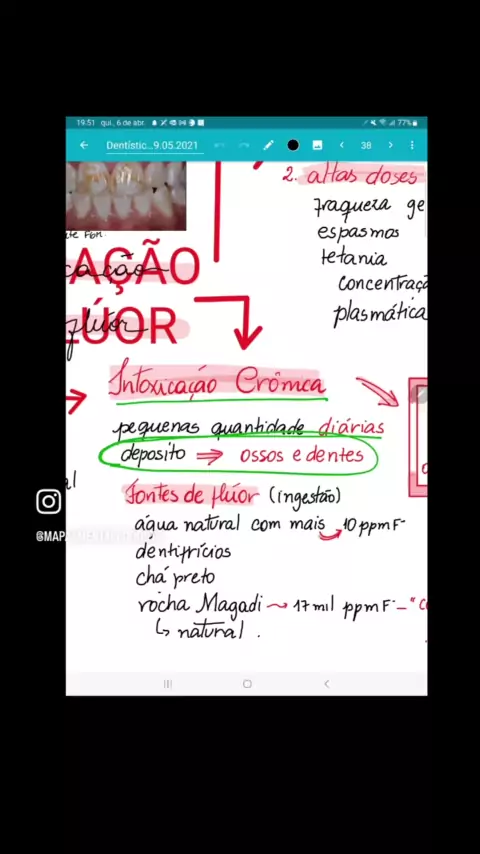 19:51 qui., 6 de abr.
77%
Dentístic...9.05.2021
38
2. altas doses
fraqueza ge
espasmos
tetania
concentraç
plasmática
AÇÃO
cação
LÚOR
flúor
Intoxicação Crônica
pequenas quantidade diárias
deposito ⇒ ossos e dentes
Fontes de flúor (ingestão)
água natural com mais → 10 ppm F-
dentifrícios
chá preto
rocha Magadi → 17 mil ppm F- - "c
↳ natural.
al